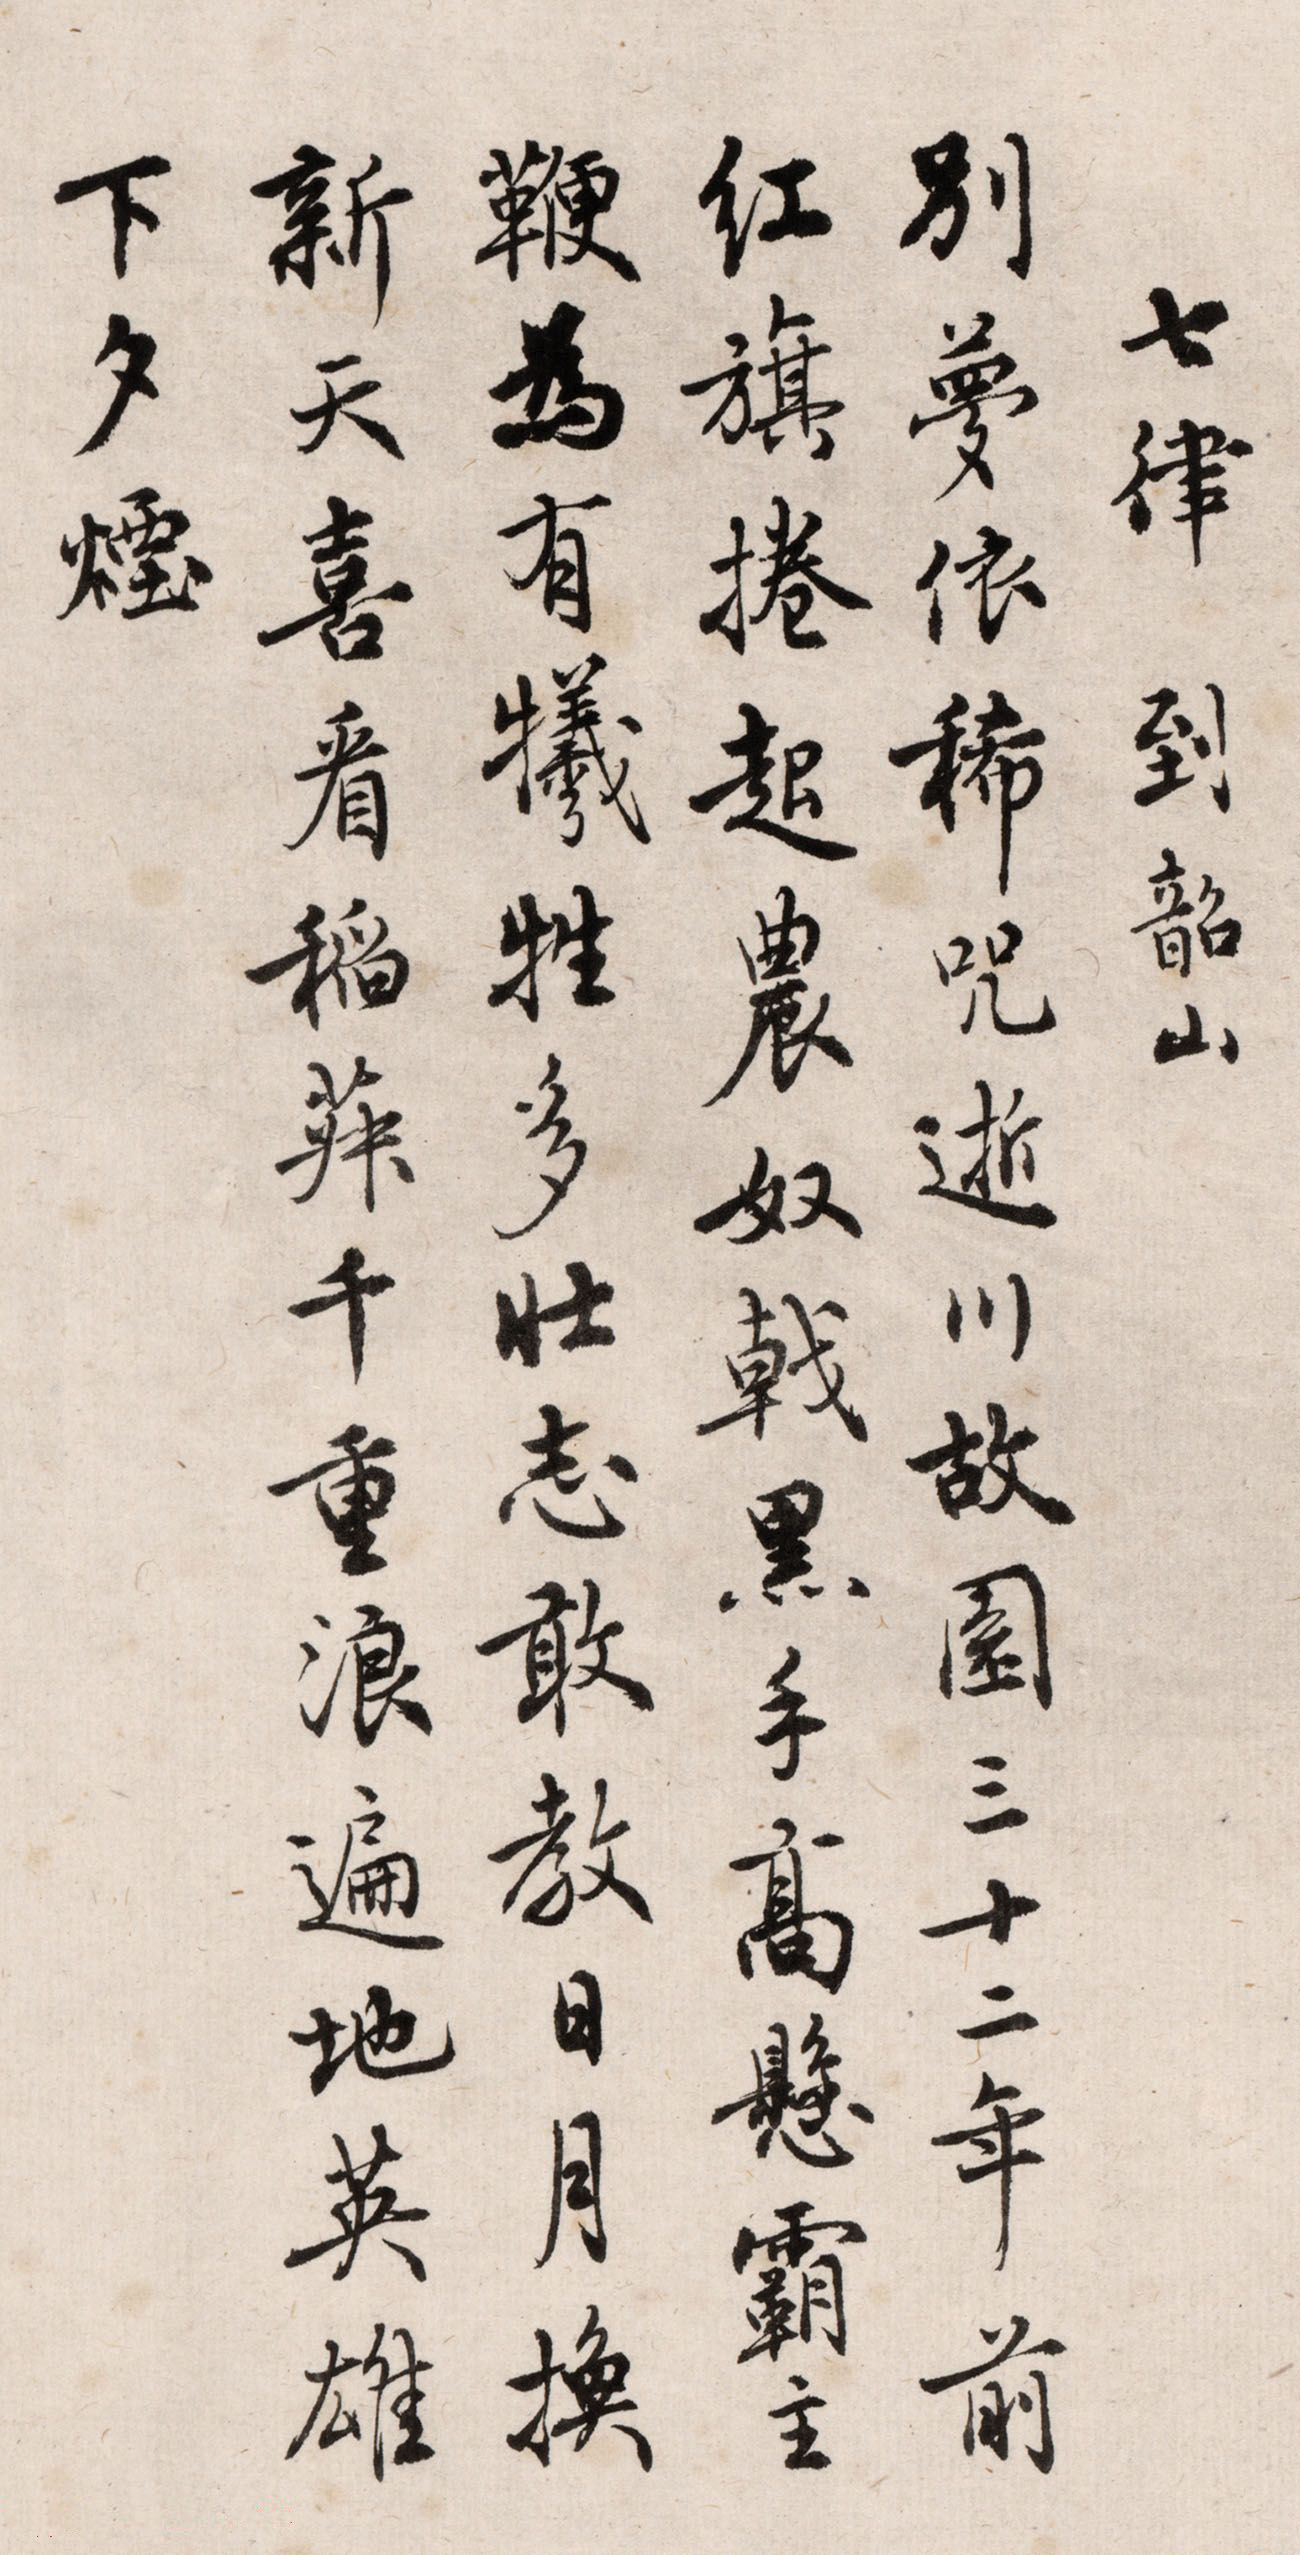 七律 到韶山
別夢依稀咒逝川故園三十二年前
紅旗捲起農奴戟黑手高懸霸主
鞭為有犧牲多壯志敢教日月換
新天喜看稻菽千重浪遍地英雄
下夕煙